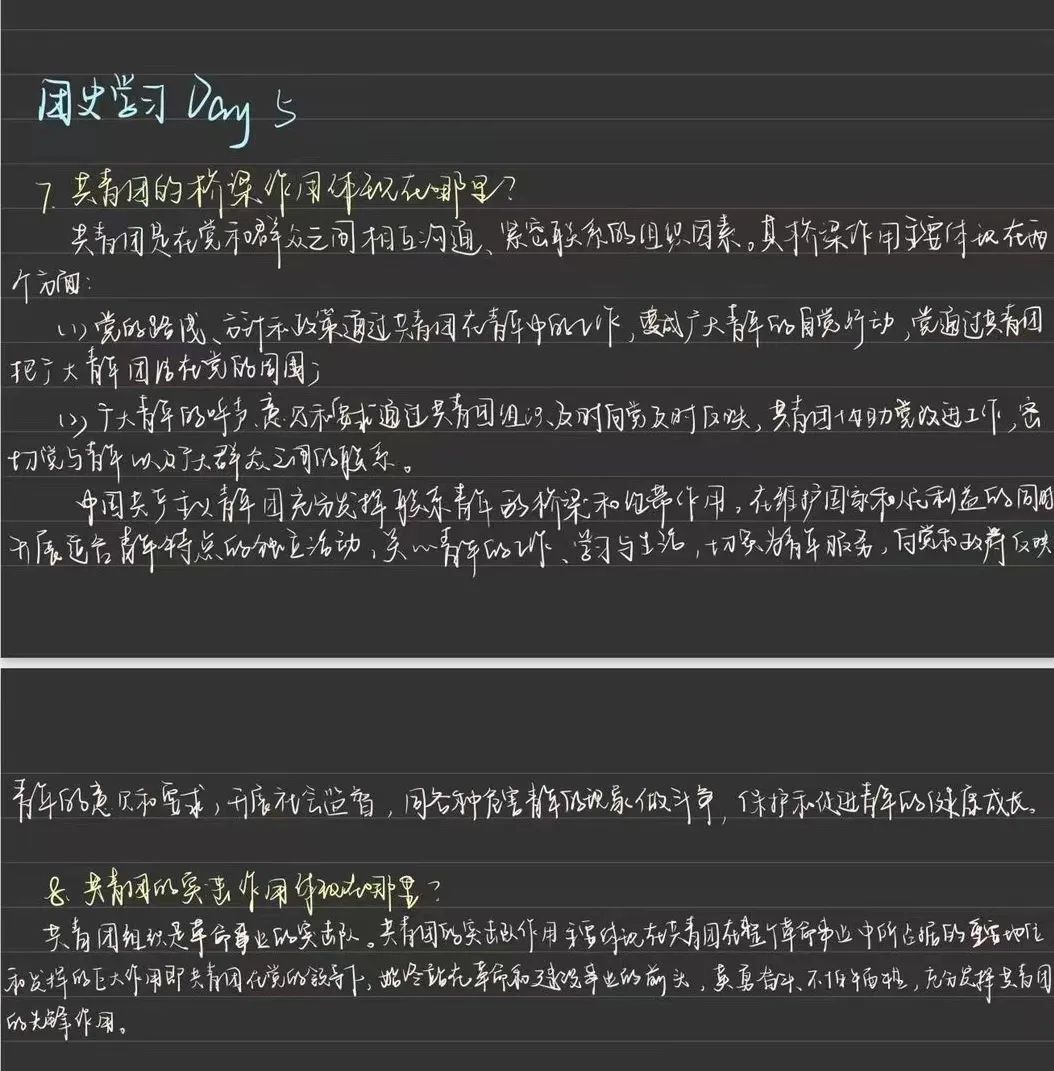 团史学习 Day 5
7. 共青团的桥梁作用体现在哪里?
共青团是在党和群众之间相互沟通、紧密联系的组织因素。其桥梁作用主要体现在两
个方面:
(1) 党的路线、方针和政策通过共青团在青年中的工作,变成广大青年的自觉行动,党通过共青团
把广大青年团结在党的周围;
(2) 广大青年的呼声、意见和要求通过共青团组织及时向党及时反映,共青团协助党改进工作,密
切党与青年以及广大群众之间的联系。
中国共产主义青年团充分发挥联系青年的桥梁和纽带作用,在维护国家和人民利益的同时
开展适合青年特点的独立活动,关心青年的工作、学习与生活,切实为青年服务,向党和政府反映
青年的意见和要求,开展社会监督,同各种危害青年的现象做斗争,保护和促进青年的健康成长。
8. 共青团的突击作用体现在哪里?
共青团组织是革命事业的突击队。共青团的突击队作用主要体现在共青团在整个革命事业中所占据的重要地位
和发挥的巨大作用即共青团在党的领导下,始终站在革命和建设事业的前头,英勇奋斗、不怕牺牲,充分发挥共青团
的先锋作用。